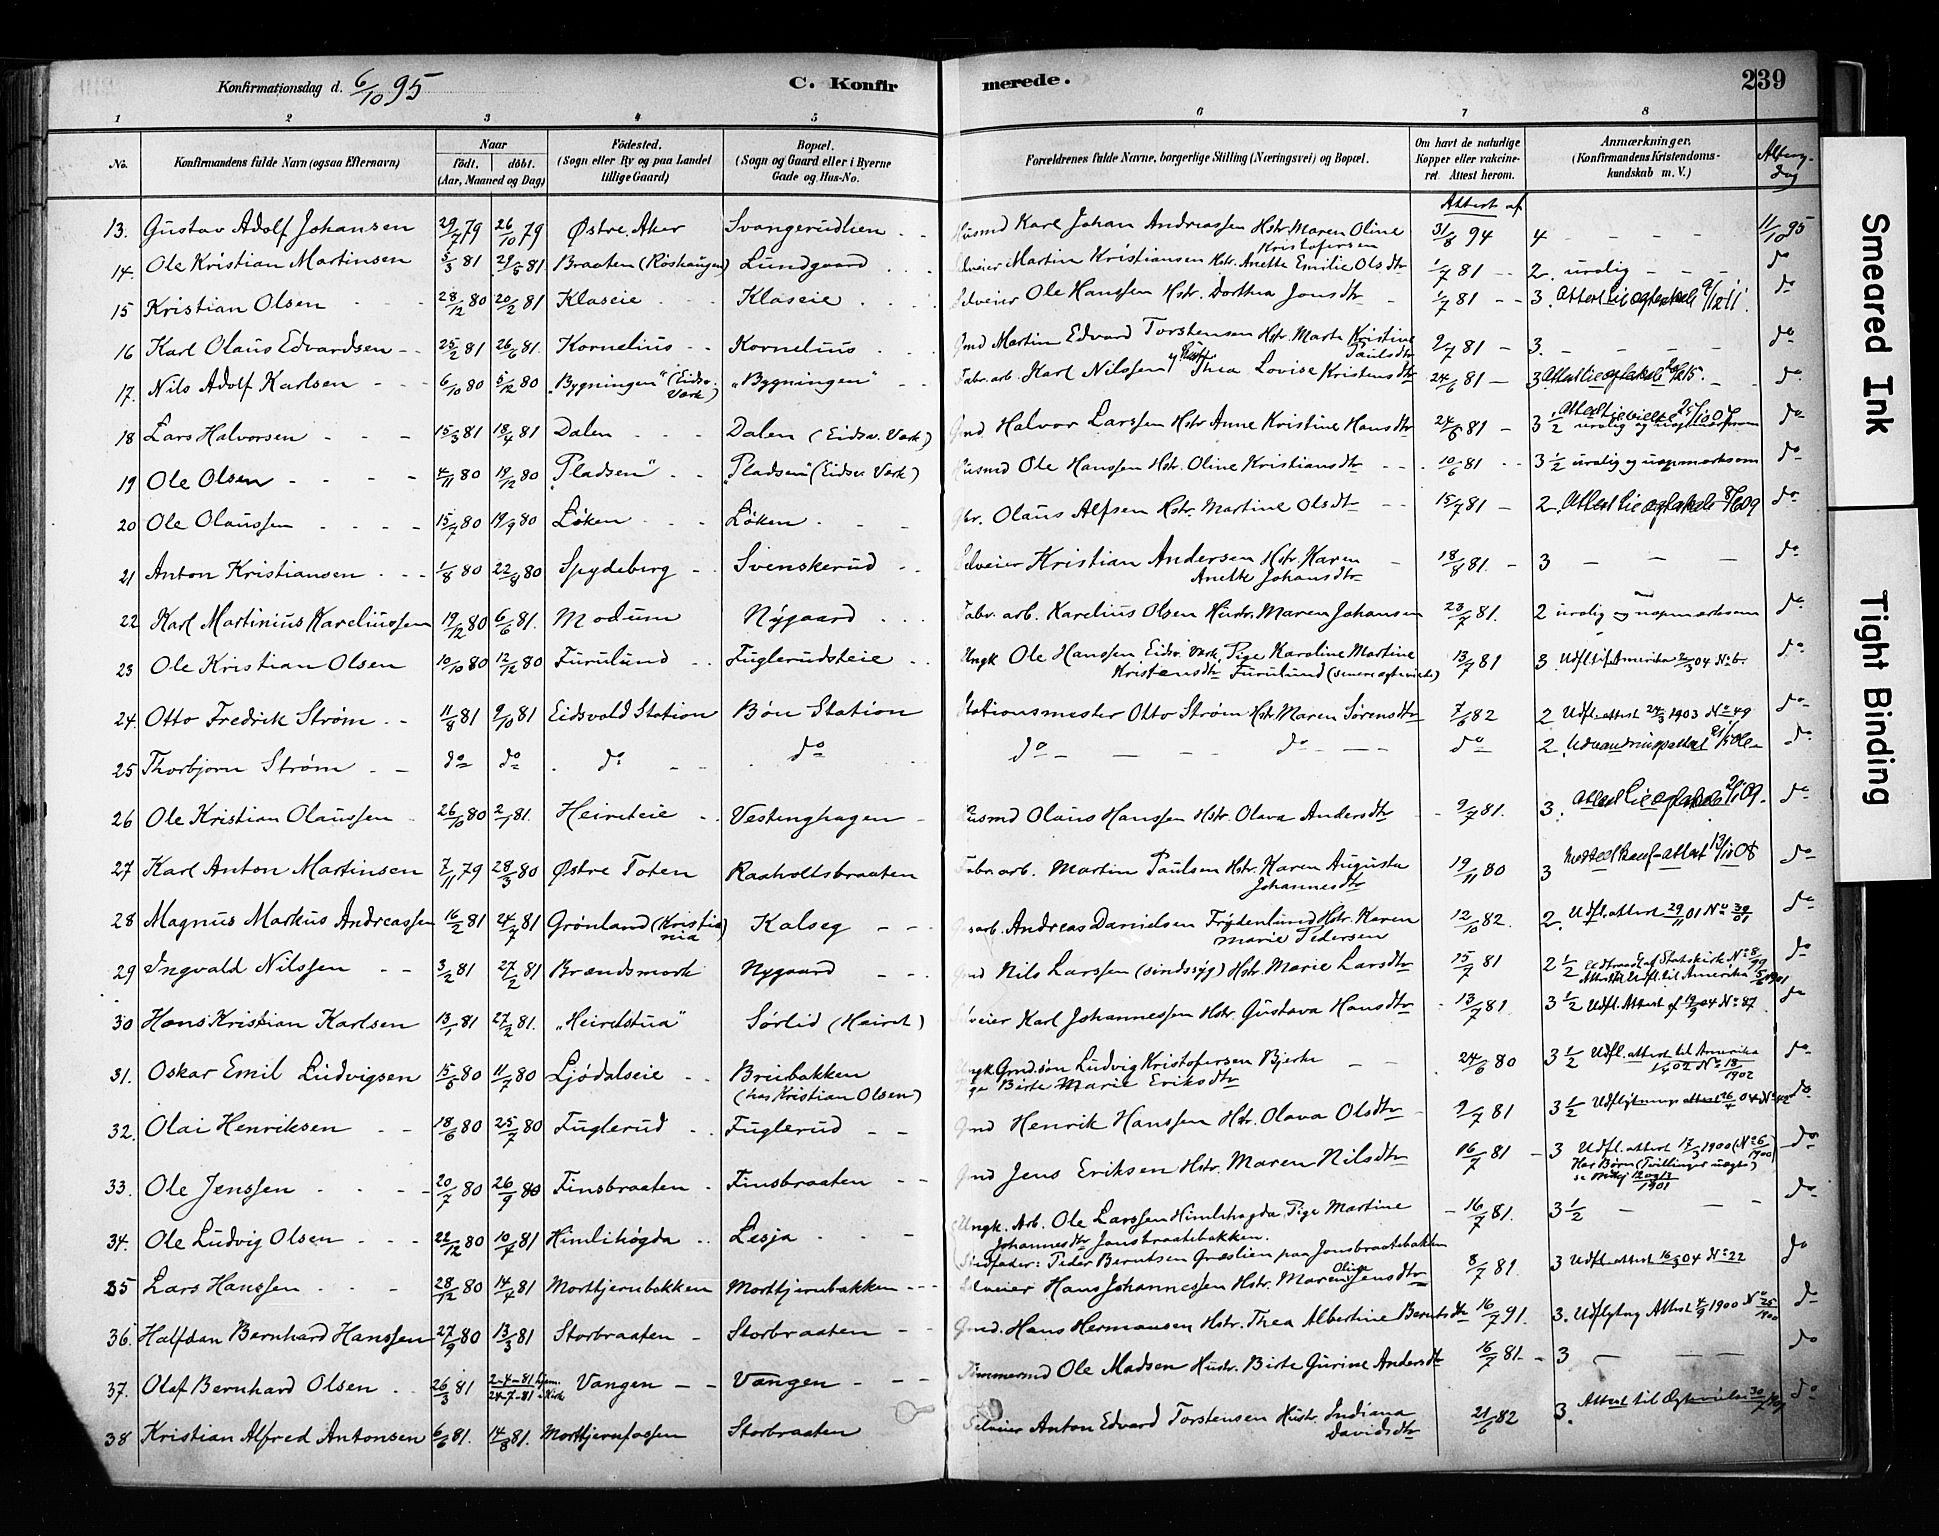 Konfirmationsdag d. 6/10 95
C. Konfirmerede.
239
1 2 3 4 5 6 7 8
No. Konfirmandens fulde Navn (ogsaa Efternavn) Naar födt. döbt. (Aar, Maaned og Dag) Födested. (Sogn eller By og paa Landet tillige Gaard) Bopæl. (Sogn og Gaard eller i Byerne Gade og Hus-No. Forældrenes fulde Navne, borgerlige Stilling (Næringsvei) og Bopæl. Om havt de naturlige Kopper eller vakcineret. Attest herom. Anmærkninger. (Konfirmandens Kristendomskundskab m. V.)
Attest af
13. Gustav Adolf Johansen 29/7 79 26/10 79 Østre Aker Svangerudlien Husmd Karl Johan Andreassen Hstr. Maren Oline Kristofersen 31/8 94 4 11/10 95
14. Ole Kristian Martinsen 5/3 81 29/5 81 Braaten (Røshaugen) Lundgaard Selveier Martin Kristiansen Hstr. Anette Emilie Olsdtr 1/7 81 2. urolig do
15 Kristian Olsen 28/12 80 20/2 81 Klaseie Klaseie Selveier Ole Hanssen Hstr. Dorthea Jonsdtr 1/7 81 3. do
16 Karl Olaus Edvardsen 25/2 81 26/6 81. Kornelius Kornelius Gmd Martin Edvard Torstensen Hstr Marte Kristine Paulsdtr 2/7 81 3. do
17. Nils Adolf Karlsen 6/10 80 5/12 80 "Bygningen" (Eidsv. Værk) "Bygningen" Fabr. arb. Karl Nilssen Thea Lovise Kristensdtr 24/6 81 3 do
18 Lars Halvorsen 15/3 81 18/4 81 Dalen Dalen (Eidsv. Værk) Gmd Halvor Larssen Hstr Anne Kristine Hansdtr 24/6 81 3 1/2 urolig og uopmærksom do
19 Ole Olsen 4/11 80 19/12 80 "Pladsen" "Pladsen" (Eidsv. Værk) Husmd Ole Hanssen Hstr. Oline Kristiansdtr 10/6 81 3 1/2 urolig og uopmærksom do
20 Ole Olaussen 15/7 80 19/9 80 Løken Løken Gbr. Olaus Alfsen Hstr. Martine Olsdtr 15/7 81 2. do
21 Anton Kristiansen 1/8 80 22/8 80 Spydeberg Svenskerud Selveier Kristian Andersen Hstr. Karen Anette Johansdtr 18/8 81. 3 do
22 Karl Martinius Kareliussen 19/12 80 6/6 81. Modum Nygaard Fabr. arb. Karelius Olsen Hustr. Maren Johansen 23/7 81. 2 urolig og uopmærksom do
23 Ole Kristian Olsen 10/10 80 12/12 80 Furulund Fuglerudseie Ungk Ole Hanssen Eidsv. Værk, Pige Karoline Martine Kristensdtr Furulund (senere egteviede) 13/7 81 3. Udfl. til Amerika 2/3 04 No 6. do
24. Otto Fredrik Strøm 11/8 81 9/10 81 Eidsvold Station Bøn Station Stationsmester Otto Strøm Hstr. Maren Sørensdtr 7/6 82 2 Udfl. attest 24/3 1903 No 49 do
25 Thorbjørn Strøm do do do do do do do 2. do
26 Ole Kristian Olaussen 26/10 80 2/1 81. Heireteie Vestenghagen Husmd Olaus Hanssen Hstr. Olava Andersdtr 9/7 81. 3. do
27 Karl Anton Martinsen 7/11 79 28/3 80 Østre Toten Raaholtsbraaten Fabr. arb. Martin Paulsen Hstr. Karen Augusta Johannesdtr 19/11 80 3 do
28 Magnus Markus Andreassen 16/2 81 24/7 81 Grønland (Kristiania) Kalseg Andreas Danielsen Frydenlund Hstr. Karen Marie Pedersen 12/10 82. 2. Udfl. attest 29/11 01 No 30/01 do
29 Ingvald Nilssen 3/2 81 27/2 81 Brændsmork Nygaard Gmd Nils Larssen (sindssyg) Hstr. Marie Larsdtr 15/7 81 2 1/2 Udtraadt af Statskirk No 8/99 Attest til Udfl. til Amerika do
30 Hans Kristian Karlsen 13/1 81 27/2 81. "Heiretstua" Sørlid (Heiret) Selveier Karl Johannessen Hstr. Gustava Hansdtr 13/7 81 3 1/2 Udfl. Attest af 19/9 04 No 87 do
31. Oskar Emil Ludvigsen 15/5 80 11/7 80 Ljødalseie Breibakken (hos Kristian Olsen) Ungk Gmd.søn Ludvig Kristofersen Bjerke Pige Birte Marie Eriksdtr 24/6 80 3 1/2 Udfl. attest til Amerika do
32. Olai Henriksen 18/6 80 25/7 80 Fuglerud Fuglerud Gmd Henrik Hanssen Hstr. Olava Olsdtr 2/7 81 3 1/2 Udflytningsattest 26/4 04 No 42 do
33. Ole Jenssen 20/7 80 26/9 80 Finsbraaten Finsbraaten Gmd Jens Eriksen Hstr. Maren Nilsdtr 16/7 81 3 Udfl. attest 17/3 1900 (No 26/1900) Har Børn (Tvillinger uægte) do
34. Ole Ludvig Olsen 22/12 80 10/7 81 Himlihøgda Lesja Ungk. Arb. Ole Larssen Himlihøgda Pige Martine Johannesdtr Jonsbraatebakken. Stedfader: Peder Berntsen Græslien paa Jonsbraatebakken 16/7 81. 3 1/2 do
35 Lars Hanssen 28/12 80 14/4 81 Morttjernbakken Morttjernbakken Selveier Hans Johannessen Hstr. Maren Oline Jensdtr 8/7 81. 3 Udfl. attest 16/3 04 No 22 do
36. Halfdan Bernhard Hanssen 27/9 80 13/3 81 Storbraaten Storbraaten Gmd. Hans Hermansen Hstr. Thea Albertine Berntsdtr 16/7 91. 3. Udflytng Attest 4/9 1900 No 25/1900 do
37. Olaf Bernhard Olsen 26/3 81 2-4-81 hjem. 24-7-81 i Kirk Vangen Vangen Tømmermd Ole Madsen Hustr. Birte Gurine Andersdtr 16/7 81 3 do
38 Kristian Alfred Antonsen 6/6 81. 14/8 81. Morttjernfossen Storbraaten Selveier Anton Edvard Torstensen Hustr. Indiana Davidsdtr 21/6 82 3. do
Smeared Ink
Tight Binding